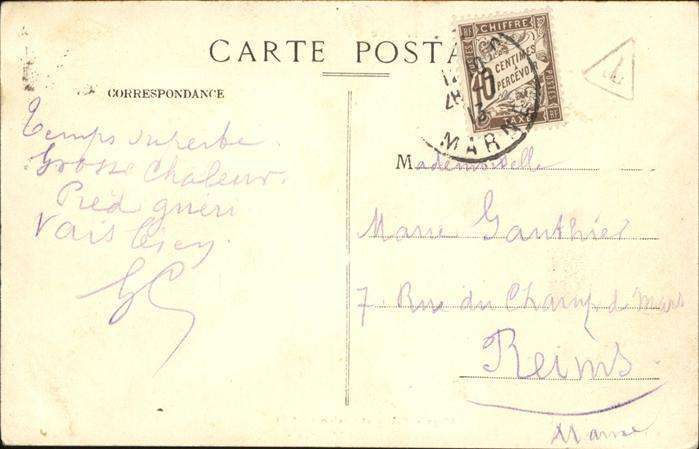 CARTE POSTA
CORRESPONDANCE
CHIFFRE
40 CENTIMES
A PERCEVOIR
TAXE
POSTES
RF
MARNE
T
Temps superbe
Grosse Chaleur.
Pied guéri
Vais bien.
GC
Mademoiselle
Marie Gauthier
7. Rue du Champ de Mars
Reims.
Marne